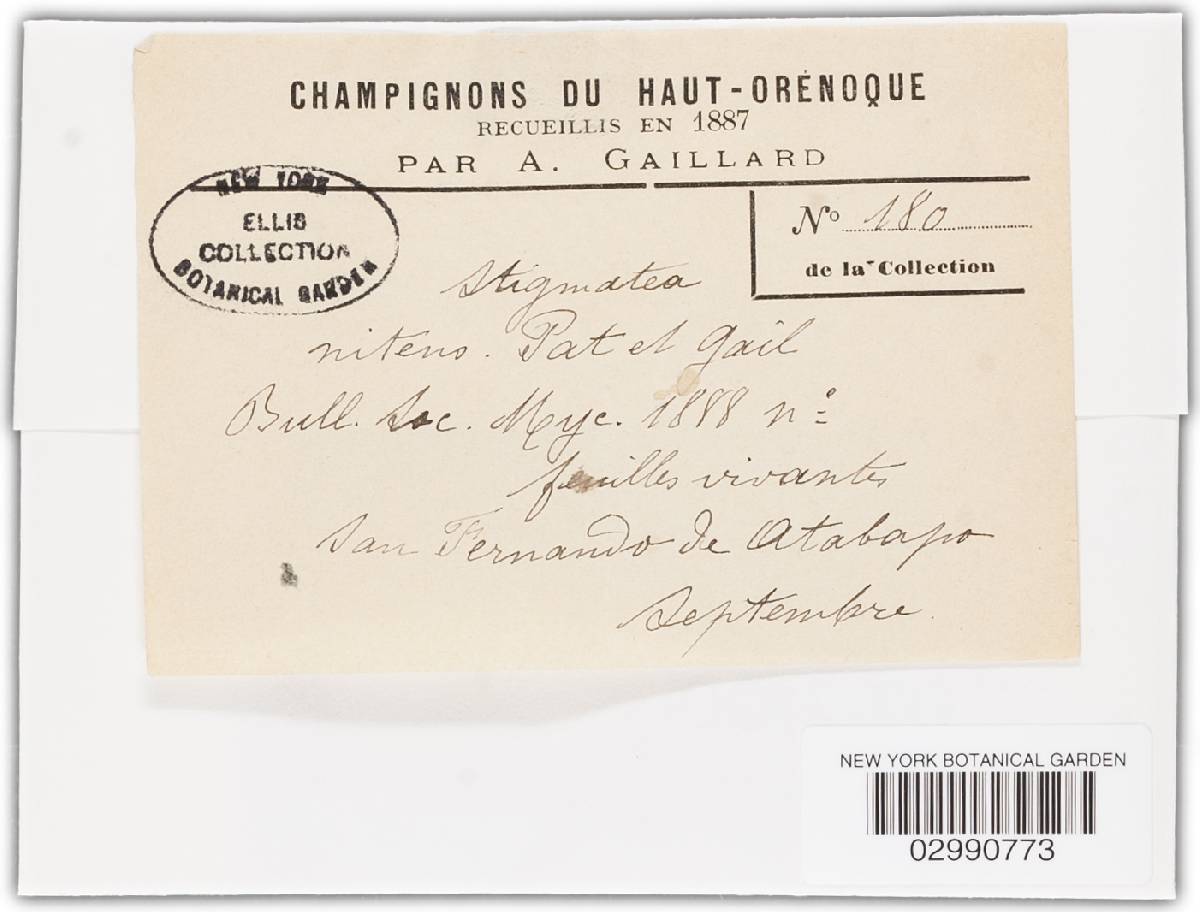 CHAMPIGNONS DU HAUT-ORÉNOQUE
RECUEILLIS EN 1887
PAR A. GAILLARD
NEW YORK
ELLIS
COLLECTION
BOTANICAL GARDEN
No 180
de la Collection
Stigmatea
nitens. Pat et Gail
Bull. Soc. Myc. 1888 no
feuilles vivantes
San Fernando de Atabapo
Septembre.
NEW YORK BOTANICAL GARDEN
02990773